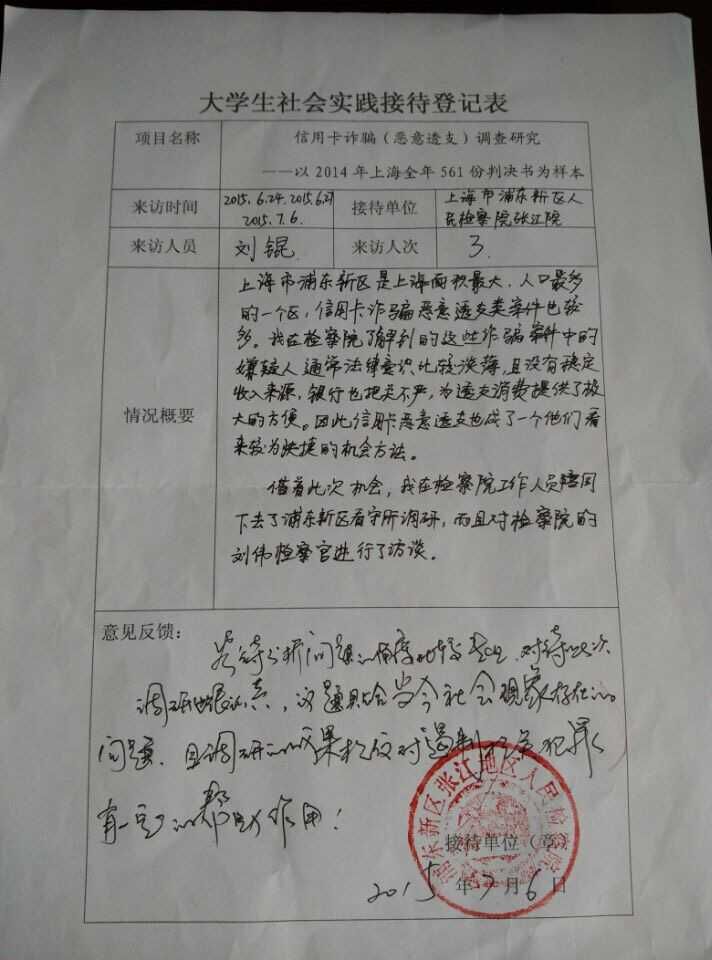 大学生社会实践接待登记表
项目名称
信用卡诈骗（恶意透支）调查研究
——以 2014 年上海全年 561 份判决书为样本
来访时间
2015.6.24. 2015.6.27
2015.7.6.
接待单位
上海市浦东新区人
民检察院张江院
来访人员
刘锟
来访人次
3.
情况概要
上海市浦东新区是上海面积最大、人口最多
的一个区，信用卡诈骗恶意透支类案件也较
多。我在检察院了解到的这些诈骗案件中的
嫌疑人通常法律意识比较淡薄，且没有稳定
收入来源，银行也把关不严，为透支消费提供了极
大的方便。因此信用卡恶意透支也成了一个他们看
来较为快捷的机会方法。
借着此次机会，我在检察院工作人员陪同
下去了浦东新区看守所调研，而且对检察院的
刘伟检察官进行了访谈。
意见反馈：
分析问题的角度比较 对待此次
调研也很认真，贴合当今社会现象存在的
问题，且调研的成果 对遏制 犯罪
有一定的帮助作用！
浦东新区张江地区人民检察院
接待单位（章）
2015 年 7 月 6 日